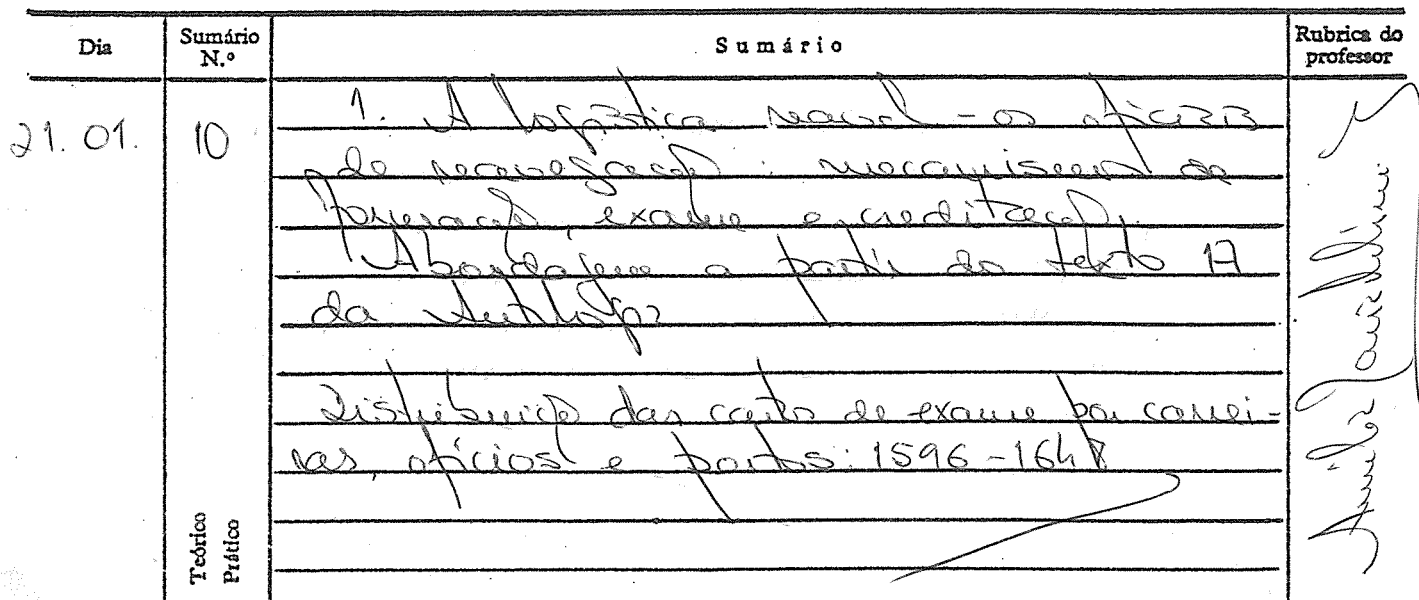 Dia
Sumário N.º
Sumário
Rubrica do professor
21. 01.
10
1. A logística naval - os oficiais
de navegação : mecanismos de
formação, exame e creditação.
Abordagem a partir do texto 17
da Antologia
Distribuição das cartas de exame por carrei-
ras, ofícios e portos: 1596-1648
Teórico
Prático